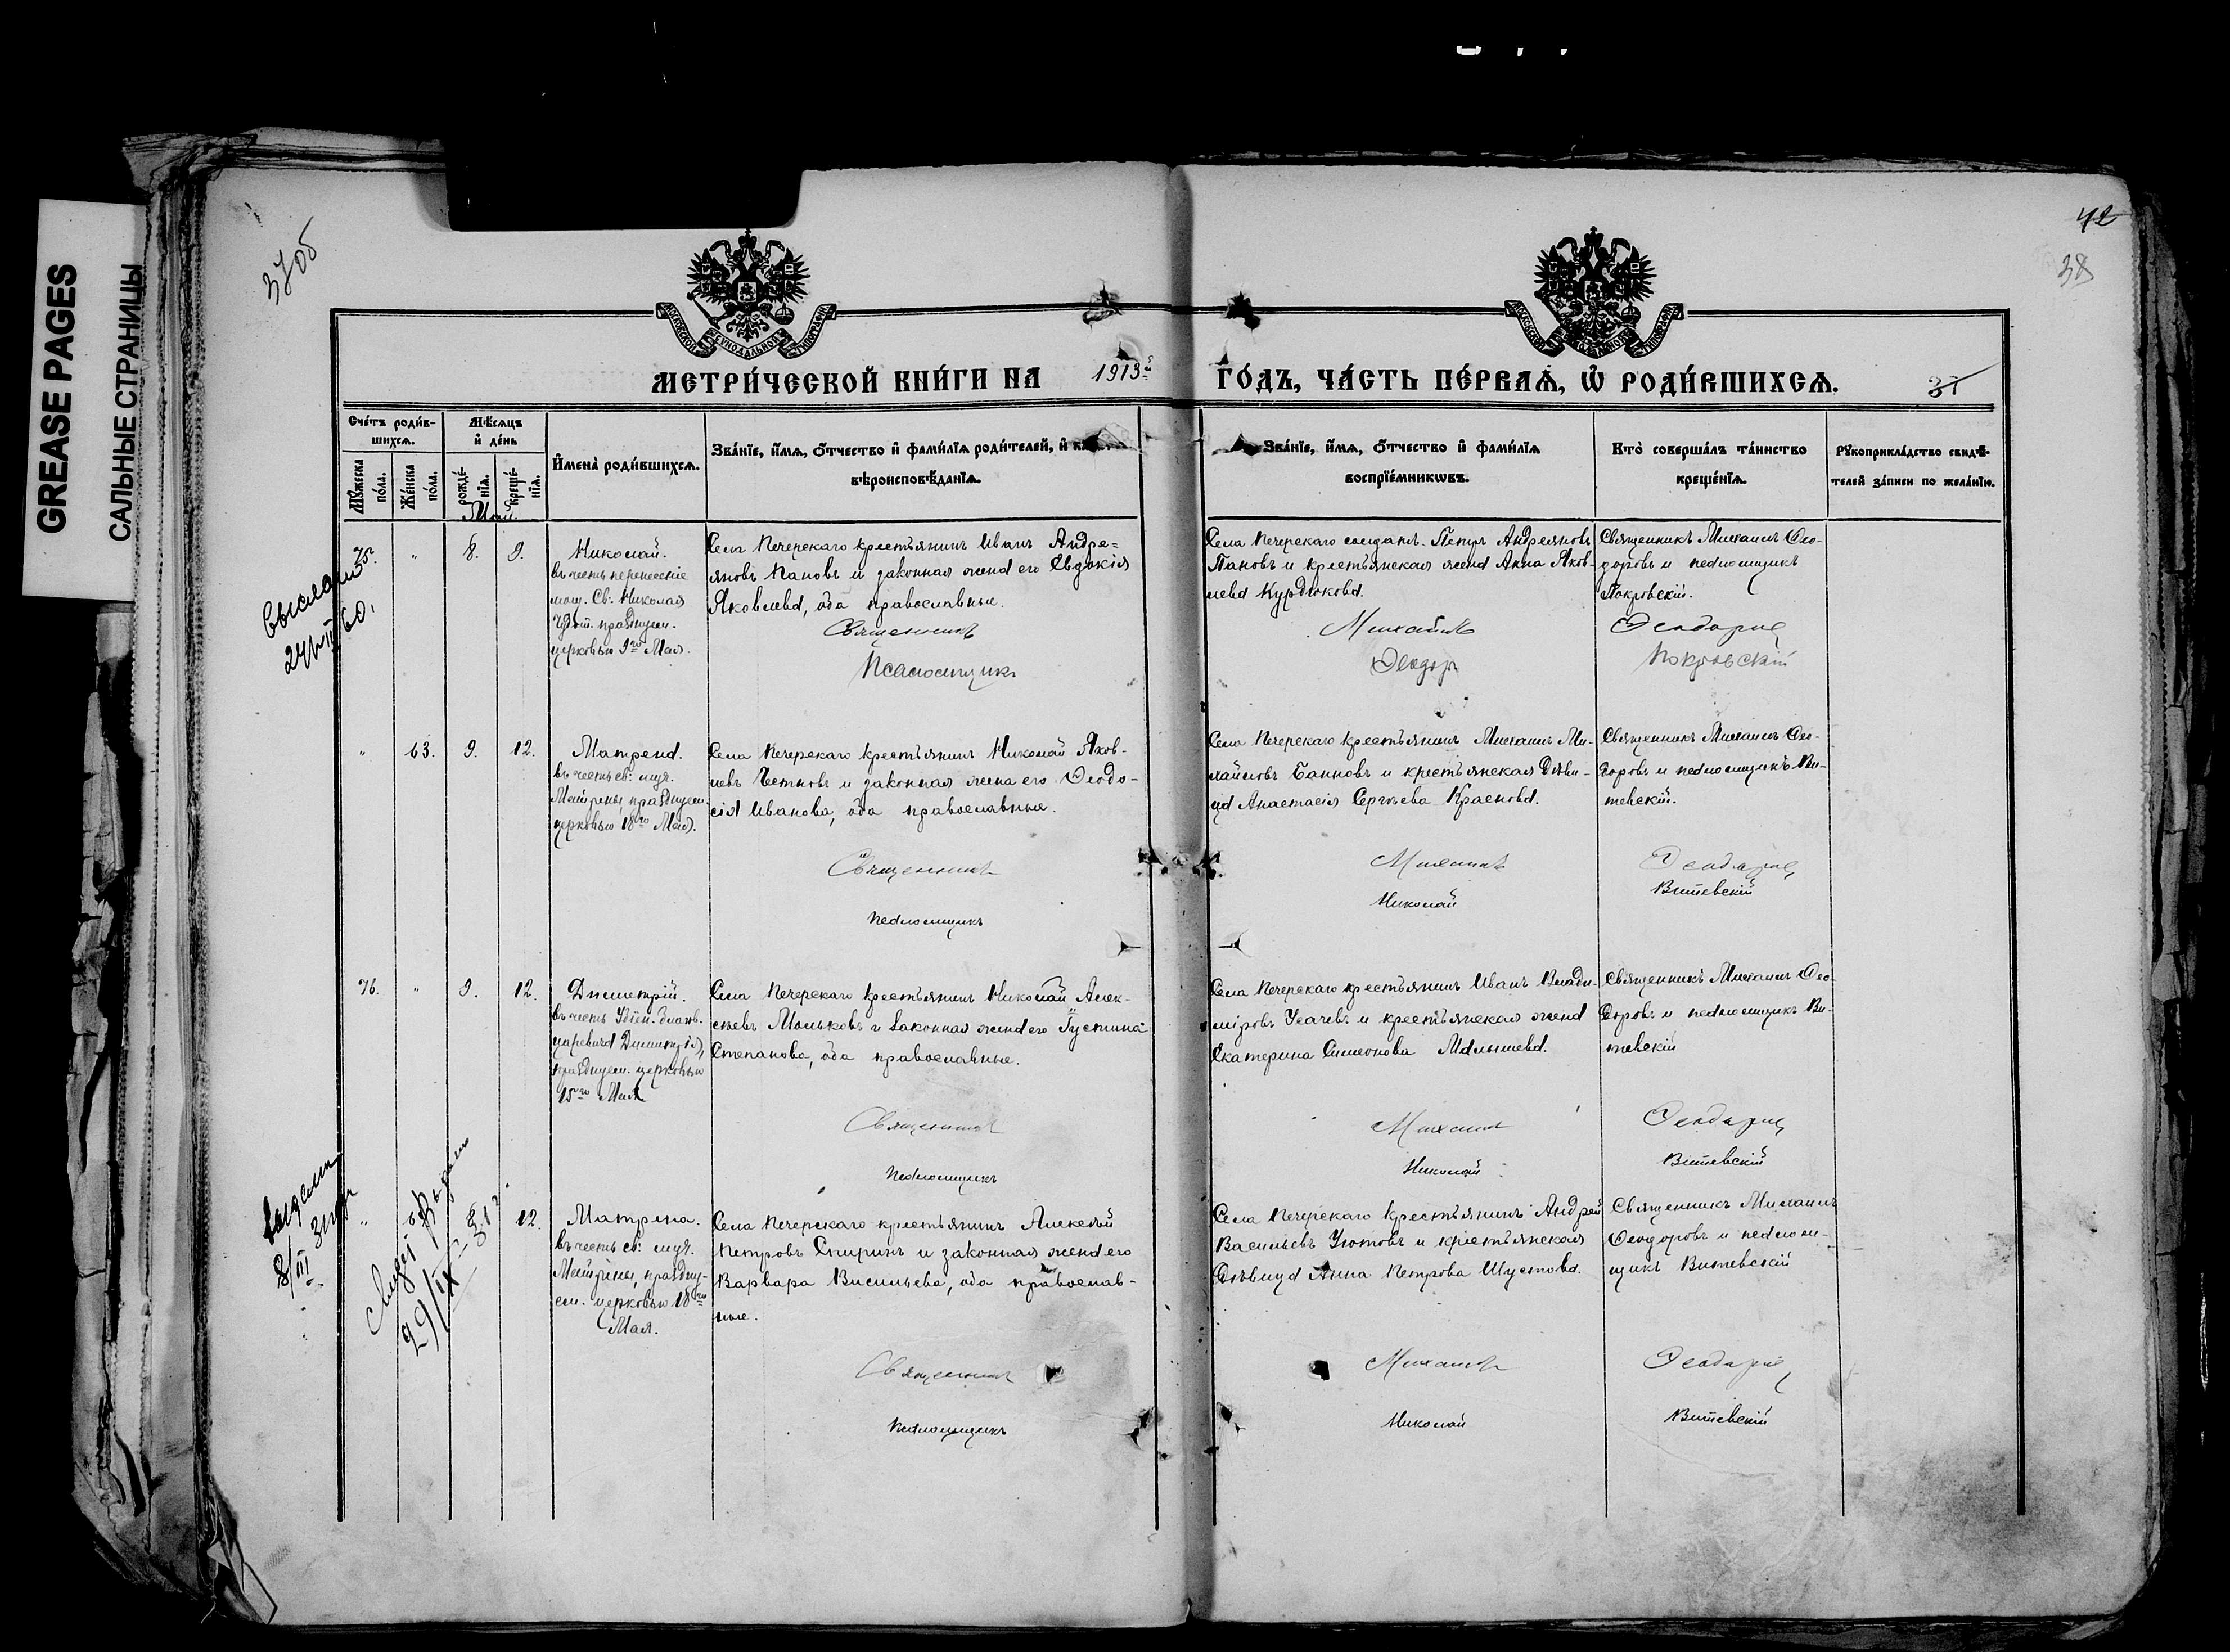 GREASE PAGES
САЛЬНЫЕ СТРАНИЦЫ
37об
42
38
МОСКОВСКОЙ СѴНОДАЛЬНОЙ ТИПОГРАФІИ
МЕТРИ́ЧЕСКОЙ КНИ́ГИ НА 1913й ГО́ДЪ, ЧА́СТЬ ПЕ́РВАѦ, Ѡ҆ РОДИ́ВШИХСѦ.
37
Сче́тъ роди́в-
шихсѧ.
Мꙋ́жеска по́ла.
Же́нска по́ла.
Мѣ́сѧцъ
и҆ де́нь
рожде́нїѧ.
креще́нїѧ.
И҆мена̀ роди́вшихсѧ.
Зва́нїе, и҆́мѧ, ѻ҆́тчество и҆ фами́лїѧ роди́телей, и҆
вѣроисповѣ́данїѧ.
Зва́нїе, и҆́мѧ, ѻ҆́тчество и҆ фами́лїѧ
воспрїе́мникѡвъ.
Кто̀ соверша́лъ та́инство
креще́нїѧ.
Рꙋкоприкла́дство свидѣ́-
телей за́писи по жела́нїю.
Май
75.
"
8.
9.
Николай.
въ честь перенесеніе
мощ. Св: Николая
Чудот. празднуем.
церковью 9го Мая.
Села Печерскаго крестьянинъ Иванъ Андре=
яновъ Пановъ и законная жена его Евдокія
Яковлева, оба православные.
Священникъ
Псаломщикъ
Села Печерскаго солдатъ Петръ Андреяновъ
Пановъ и крестьянская жена Анна Яков-
лева Курдюкова.
Михаилъ
Ѳеодор
Священникъ Михаилъ Ѳео-
доровъ и псаломщикъ
Покровскій.
Ѳеодоровъ
Покровскій
"
63.
9.
12.
Матрена.
въ честь св: муч.
Матроны, празднуем.
церковью 18го Мая.
Села Печерскаго крестьянинъ Николай Яков-
левъ Четновъ и законная жена его Ѳеодо-
сія Иванова, оба православные.
Священникъ
Псаломщикъ
Села Печерскаго крестьянинъ Михаилъ Ми-
хайловъ Банновъ и крестьянская дѣви-
ца Анастасія Сергѣева Краснова.
Михаилъ
Николай
Священникъ Михаилъ Ѳео-
доровъ и псаломщикъ Ви-
тевскій.
Ѳеодоровъ
Витевскій
76.
"
9.
12.
Димитрій.
въ честь Убіен. благов.
царевича Димитрія,
празднуем. церковью
15го Мая
Села Печерскаго крестьянинъ Николай Алек-
сѣевъ Мольковъ и законная жена его Іустина
Степанова, оба православные.
Священникъ
Псаломщикъ
Села Печерскаго крестьянинъ Иванъ Влади-
міровъ Усачевъ и крестьянская жена
Екатерина Симеонова Малышева.
Михаилъ
Николай
Священникъ Михаилъ Ѳео-
доровъ и псаломщикъ Ви-
тевскій
Ѳеодоровъ
Витевскій
"
12.
Матрена.
въ честь св: муч.
Матроны, праздну-
ем. церковью 18го
Мая.
Села Печерскаго крестьянинъ Алексѣй
Петровъ Спиринъ и законная жена его
Варвара Васильева, оба православ-
ные.
Священникъ
Псаломщикъ
Села Печерскаго крестьянинъ Андрей
Васильевъ Утотовъ и крестьянская
дѣвица Анна Петрова Шустова.
Михаилъ
Николай
Священникъ Михаилъ
Ѳеодоровъ и псалом-
щикъ Витевскій
Ѳеодоровъ
Витевскій
выдали
8/III
29/IX